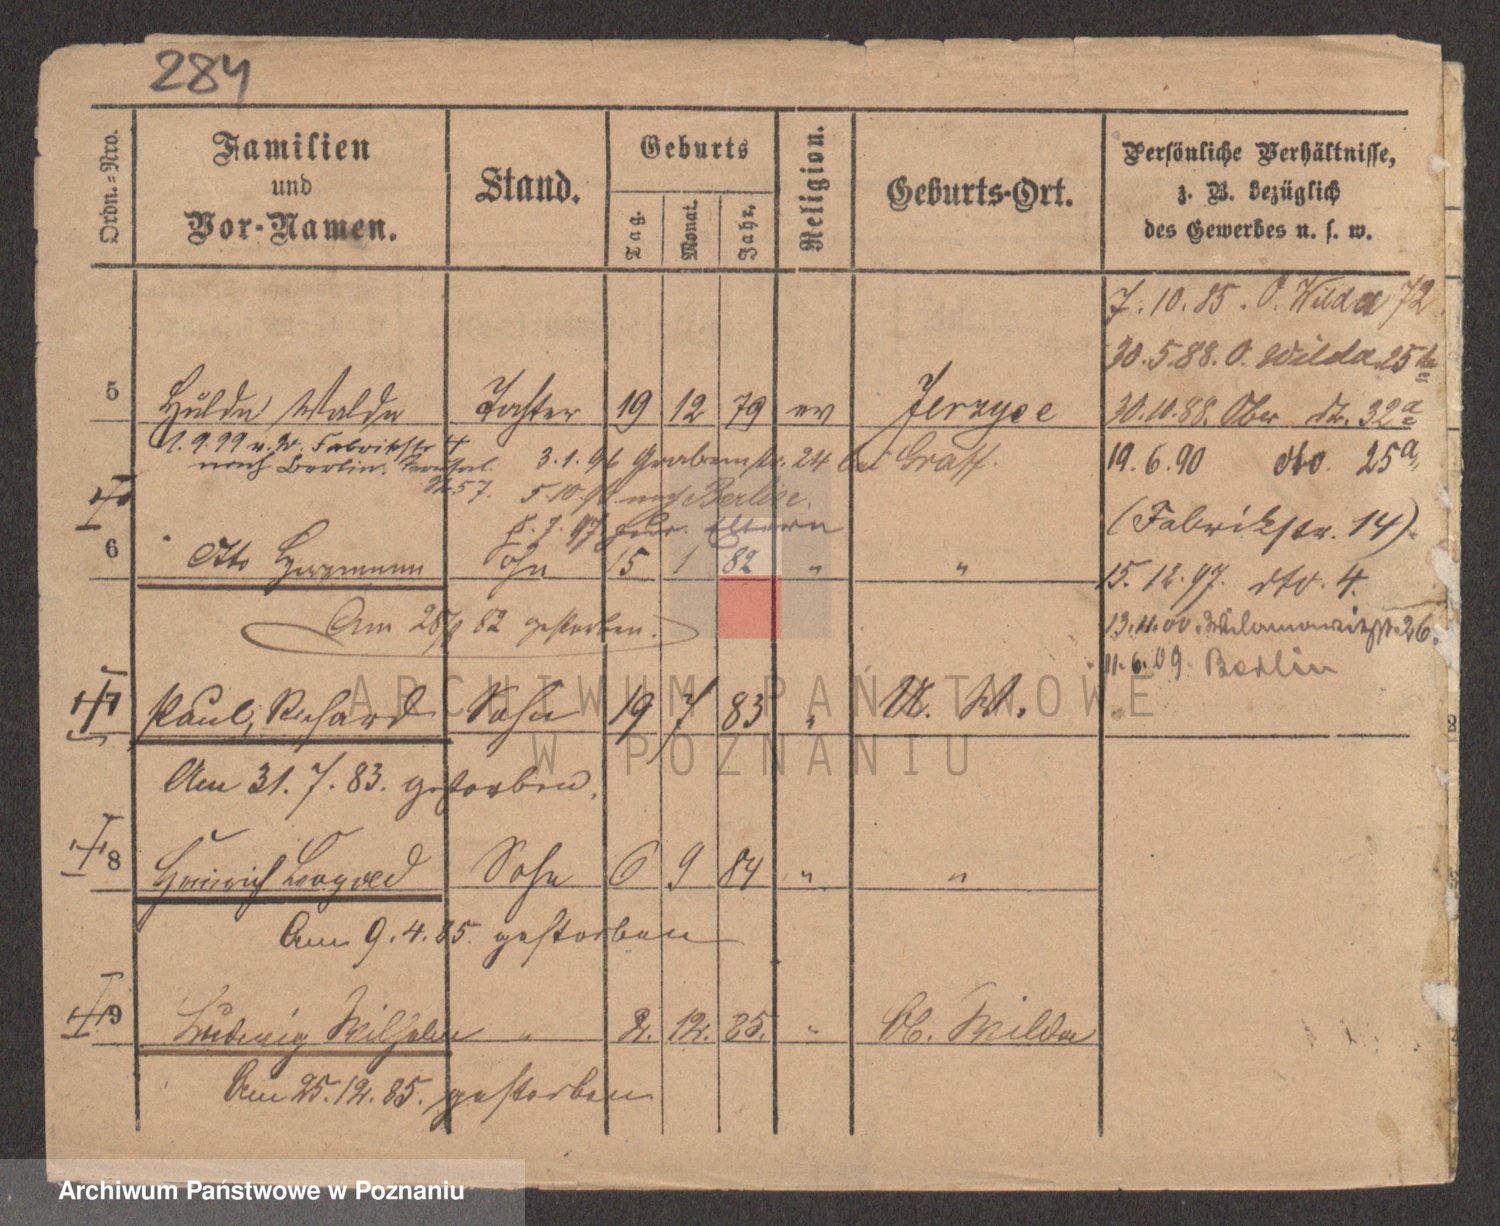 284
Ordn.-Nro.
Familien
und
Vor-Namen.
Stand.
Geburts
Tag.
Monat.
Jahr.
Religion.
Geburts-Ort.
Persönliche Verhältnisse,
z. B. bezüglich
des Gewerbes u. s. w.
7.10.85. O. Wilda 72
30.5.88. O. Wilda 25
5 Hulda Walda Tochter 19 12 79 ev Jerzyce
30.10.88. Ober 32a
1.9.99 v. Fabrikstr 4
nach Berlin.
57.
3.1.96 Grabenstr. 24 bei Graff.
19.6.90 dto. 25a
5.10. nach Berlin.
(Fabrikstr. 14).
7.97 Eltern
6 Otto Herrmann Sohn 15 1 82 " "
15.12.97. dto. 4.
Am 82 gestorben.
13.11.00. 26.
11.6.09. Berlin
7 Paul, Richard Sohn 19 7 83 " U. W.
Am 31.7.83. gestorben.
8 Heinrich Leopold Sohn 6 9 84 " "
Am 9.4.85. gestorben
9 Ludwig Wilhelm " 2. 12. 85. " Ob. Wilda
Am 25.12.85. gestorben
ARCHIWUM PAŃSTWOWE
W POZNANIU
Archiwum Państwowe w Poznaniu